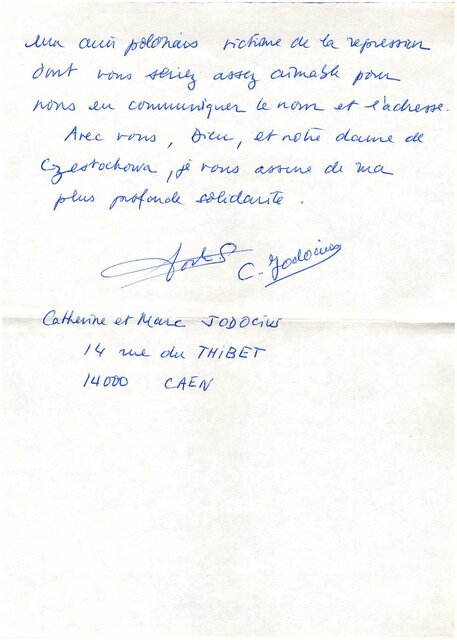 un ami polonais victime de la repression
dont vous seriez assez aimable pour
nous en communiquer le nom et l'adresse.
Avec vous, Dieu, et notre dame de
Czestochowa, je vous assure de ma
plus profonde solidarité.
C. Jodocius
Catherine et Marc JODOCIUS
14 rue du THIBET
14000 CAEN